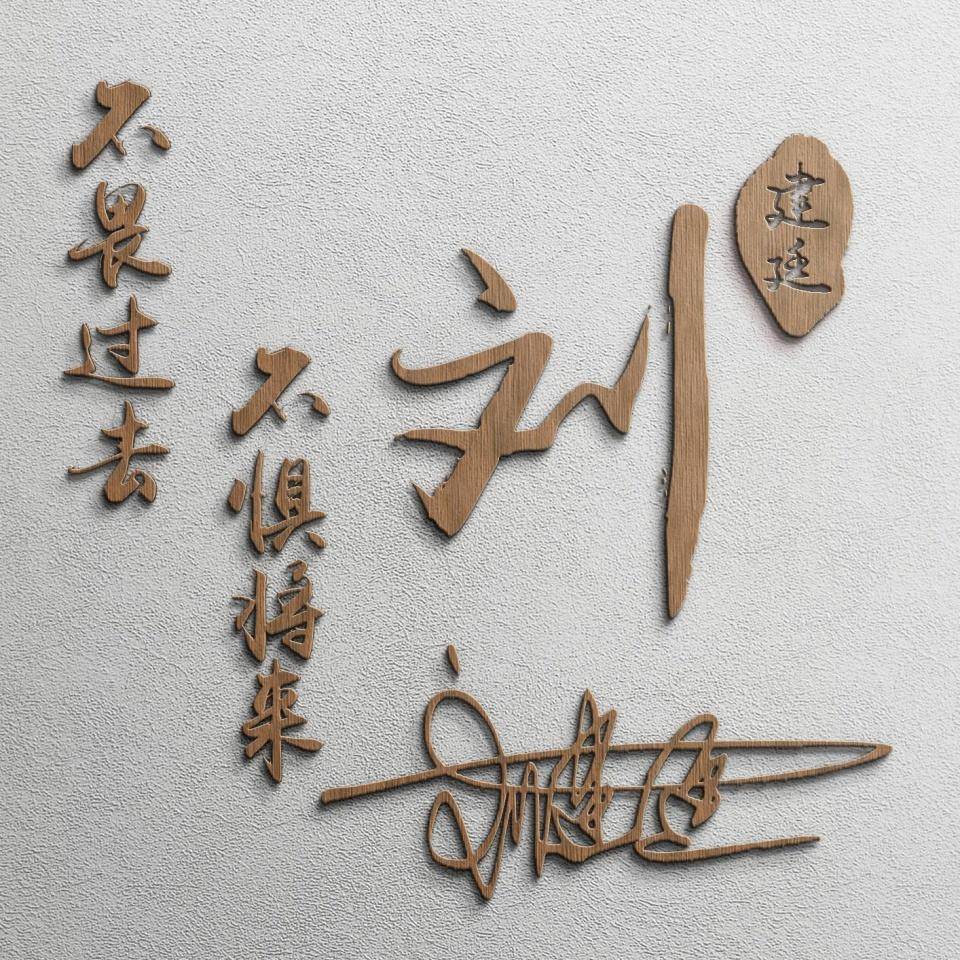 建廷
刘
不畏过去
不惧将来
刘建廷